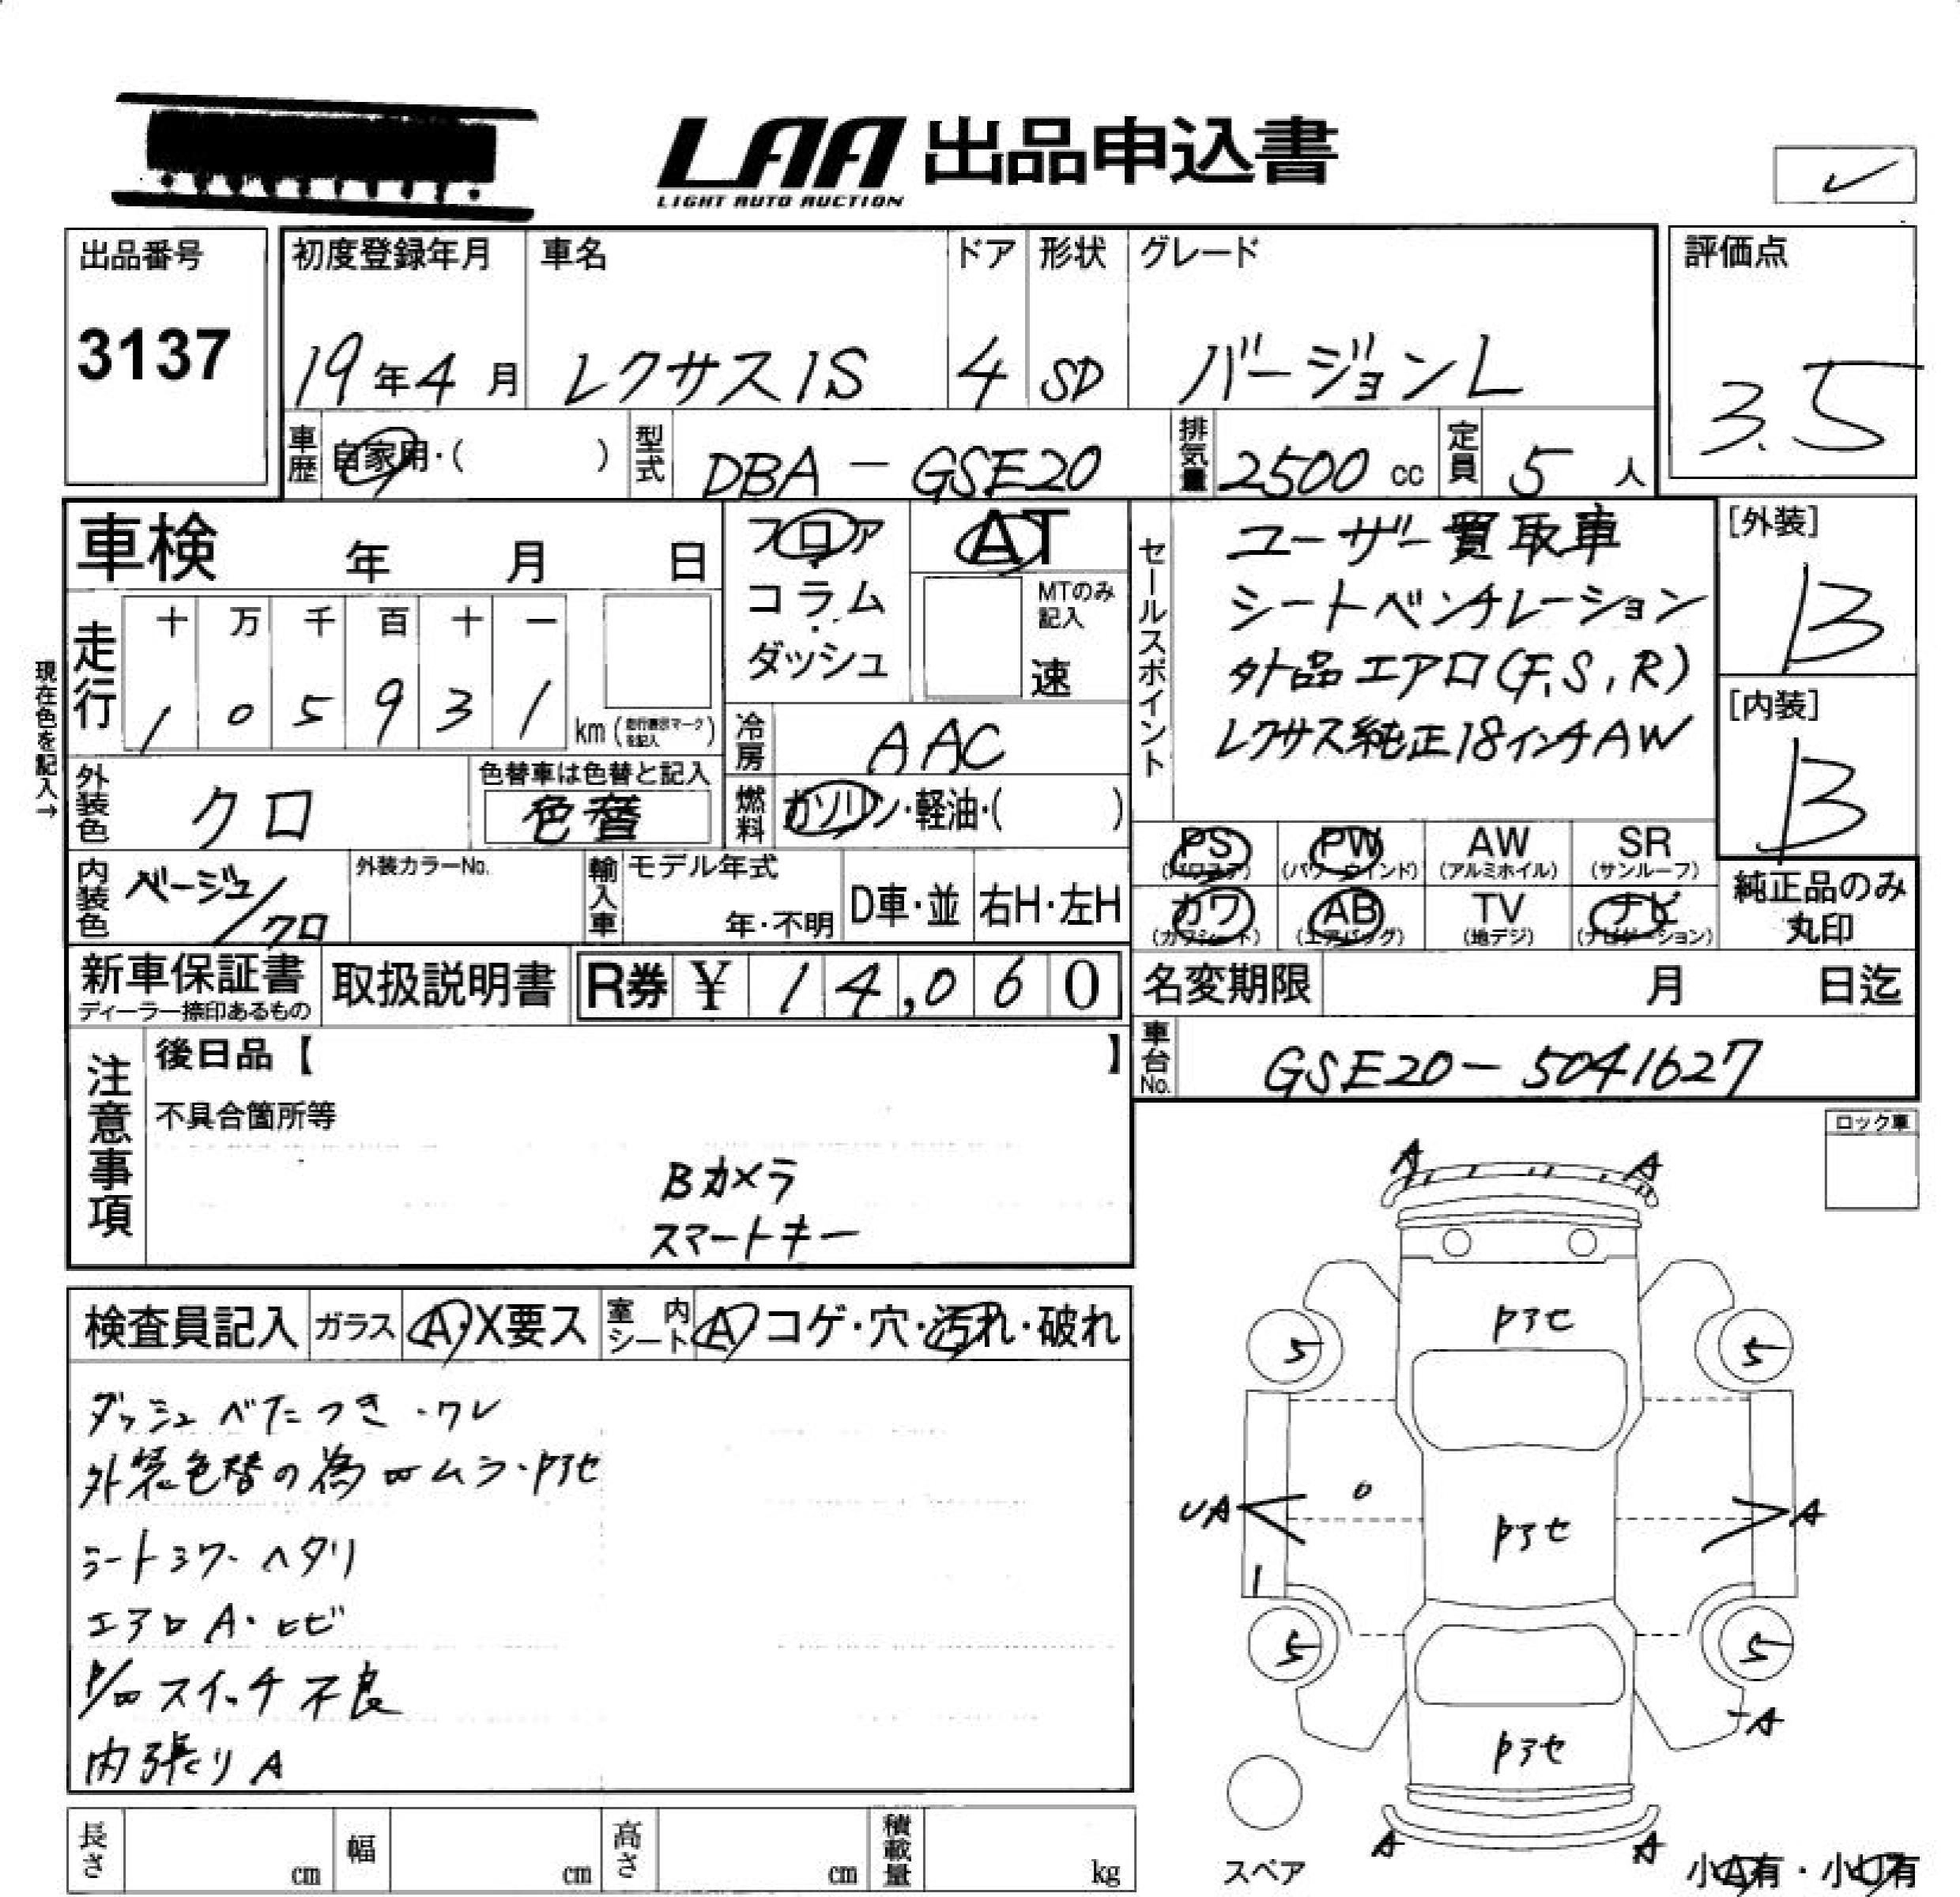 LAA 出品申込書
LIGHT AUTO AUCTION
出品番号
3137
初度登録年月
19年4月
車名
レクサスIS
ドア
4
形状
SD
グレード
バージョンL
評価点
3.5
車歴
自家用・( )
型式
DBA-GSE20
排気量
2500 cc
定員
5人
車検 年 月 日
フロア・コラム・ダッシュ
AT
MTのみ記入
速
セールスポイント
ユーザー買取車
シートベンチレーション
外品エアロ(F,S,R)
レクサス純正18インチAW
[外装]
B
[内装]
B
現在色を記入→
走行
十 万 千 百 十 一
1 0 5 9 3 1
km(走行表示マークを記入)
冷房
AAC
外装色
クロ
色替車は色替と記入
色替
燃料
ガソリン・軽油・( )
PS (パワステ)
PW (パワーウインド)
AW (アルミホイル)
SR (サンルーフ)
カワ (カワシート)
AB (エアバッグ)
TV (地デジ)
ナビ (ナビゲーション)
純正品のみ丸印
内装色
ベージュ/クロ
外装カラーNo.
輸入車
モデル年式
年・不明
D車・並
右H・左H
新車保証書
ディーラー捺印あるもの
取扱説明書
R券 ¥ 14,060
名変期限 月 日迄
車台No.
GSE20-5041627
注意事項
後日品【 】
不具合箇所等
Bカメラ
スマートキー
ロック車
検査員記入
ガラス
A・X要ス
室内シート
A コゲ・穴・汚れ・破れ
ダッシュベたつき・ワレ
外装色替の為ムラ・アセ
シートシワ・ヘタリ
エアロA・ヒビ
スイッチ不良
内張りA
A A
アセ
5 5
UA
A
アセ
5 5
A
アセ
A A
スペア
小A有・小U有
長さ cm
幅 cm
高さ cm
積載量 kg